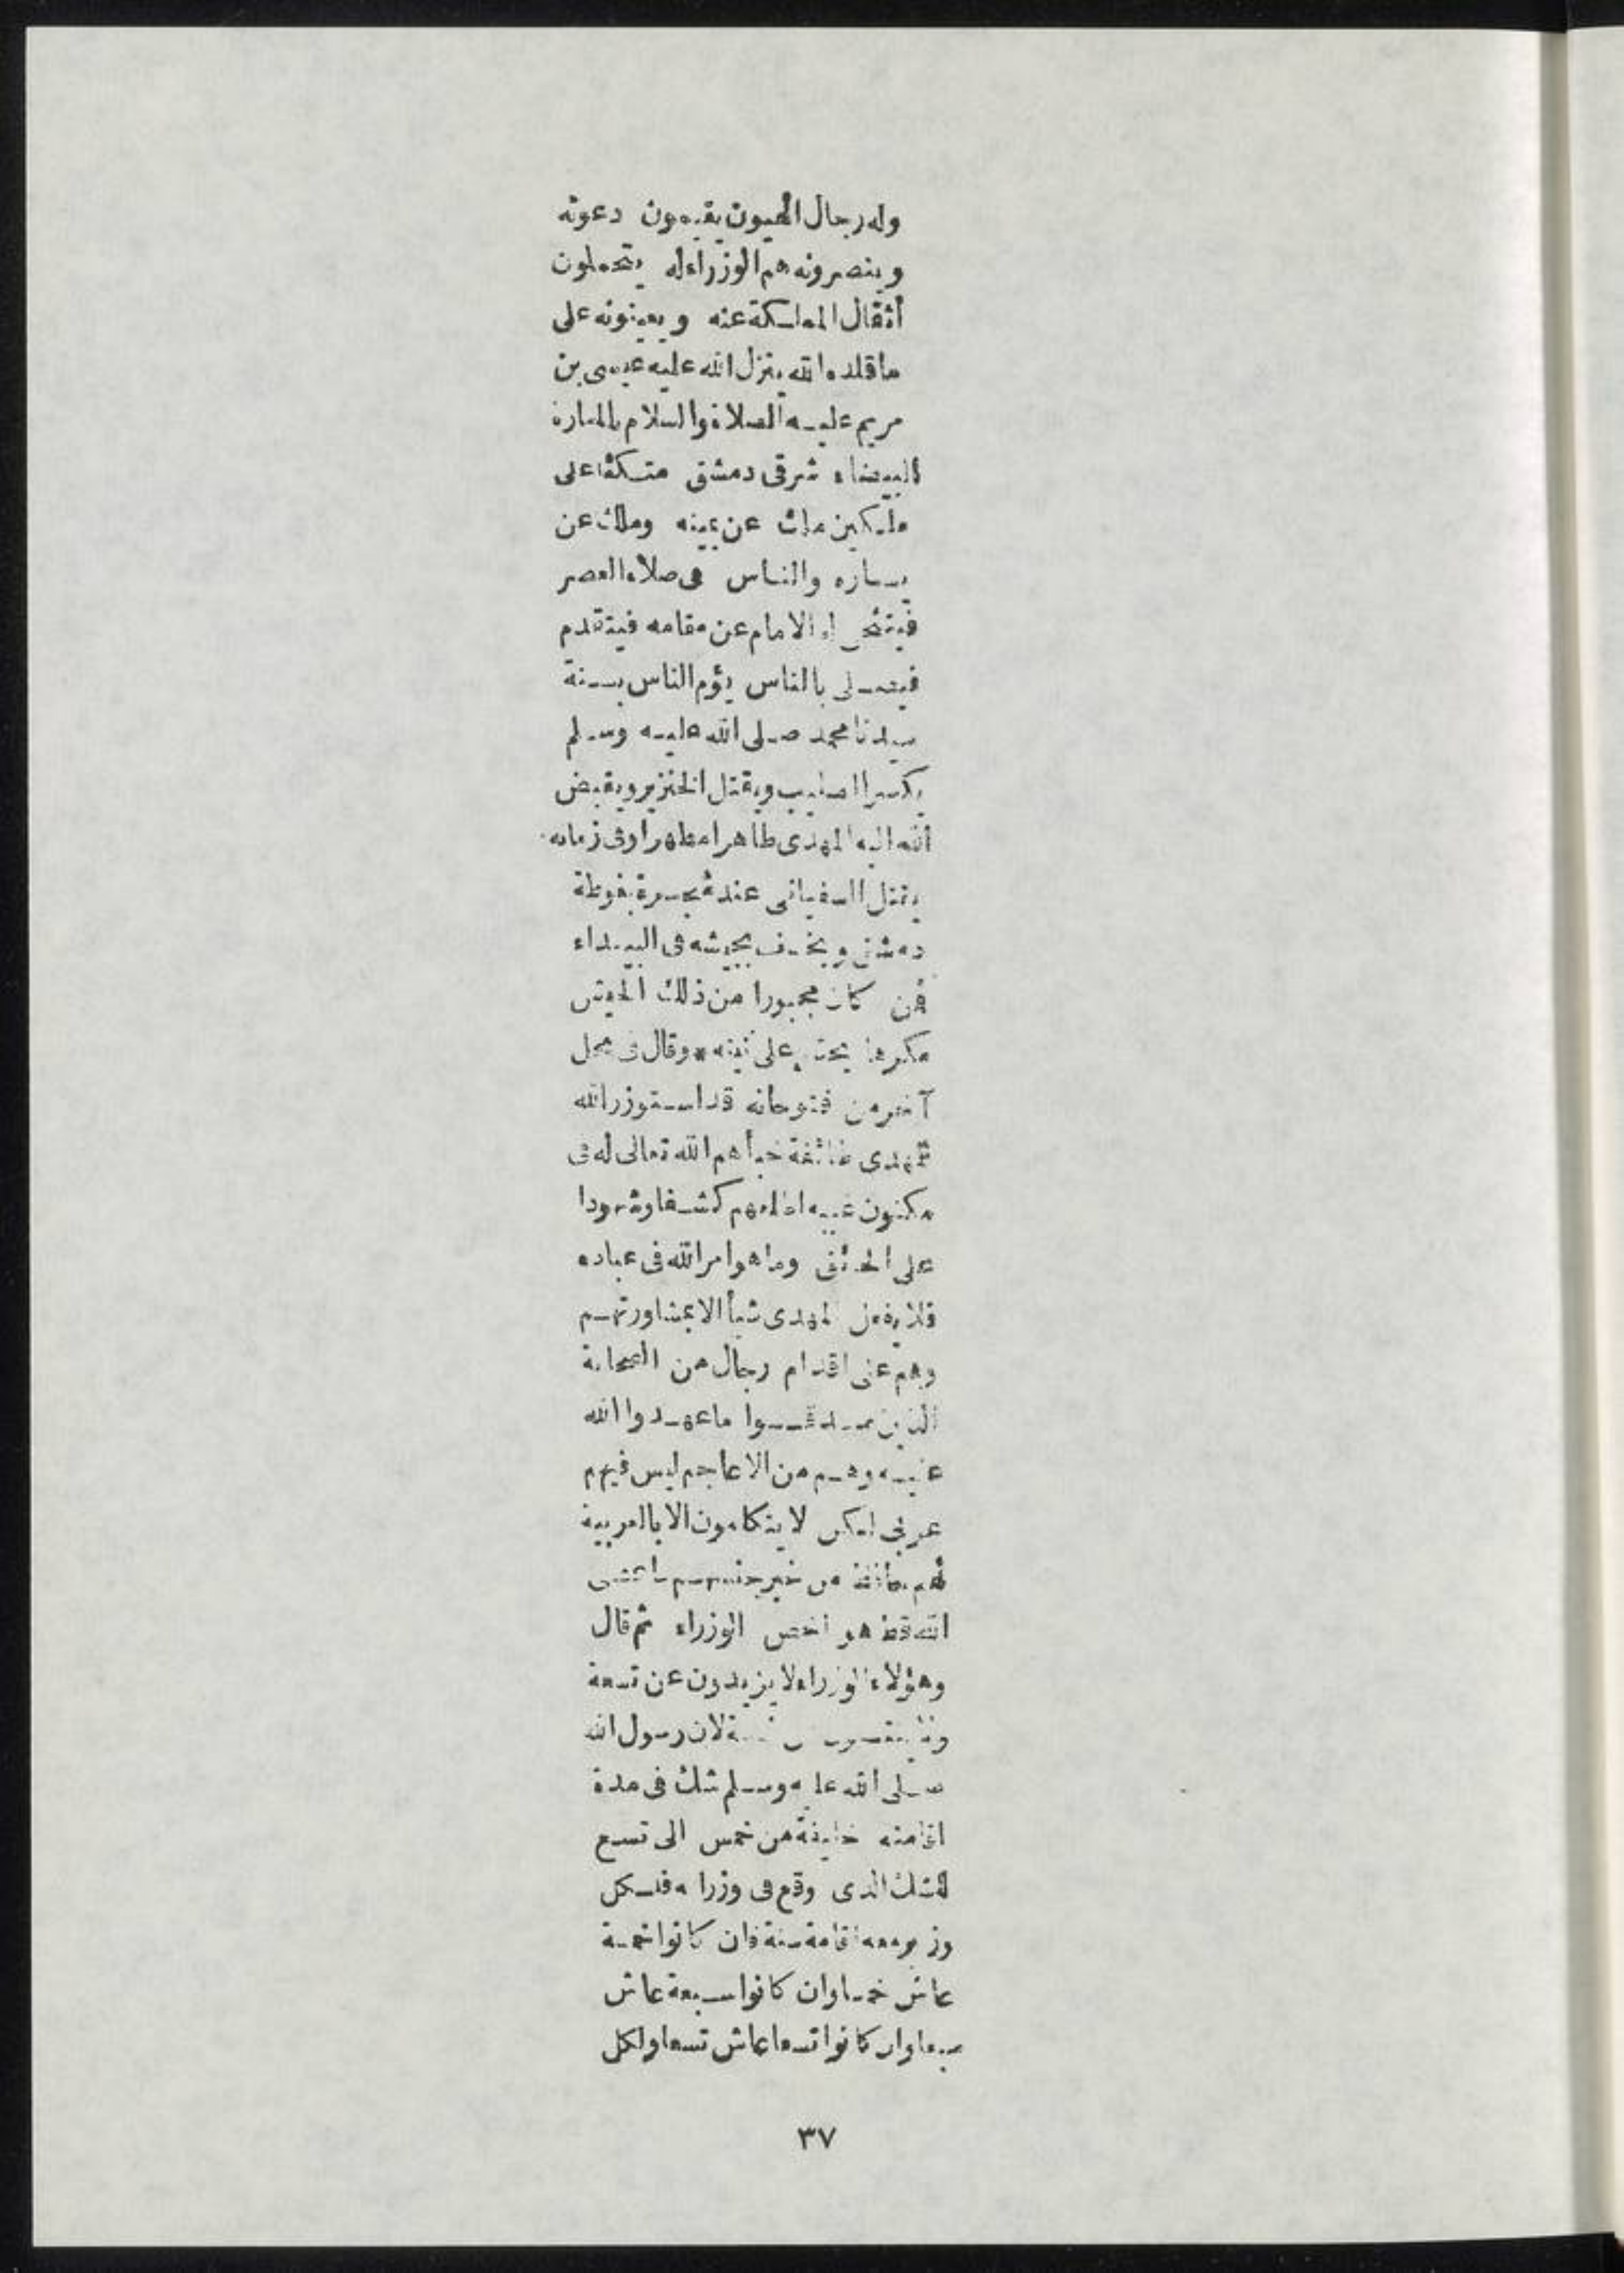 وله رجال الهيون يقيمون دعوته
وينصرونه هم الوزراء له يتحملون
أثقال المملكة عنه ويعينونه على
ما قلده الله ينزل الله عليه عيسى بن
مريم عليه الصلاة والسلام بالمنارة
البيضاء شرقى دمشق متكئا على
ملكين ملك عن يمينه وملك عن
يساره والناس فى صلاة العصر
فيتنحى له الامام عن مقامه فيتقدم
فيصلى بالناس يؤم الناس بسنة
سيدنا محمد صلى الله عليه وسلم
يكسر الصليب ويقتل الخنزير ويقبض
الله اليه المهدى طاهرا مطهرا وفى زمانه
يقتل السفيانى عند شجرة بغوطة
دمشق ويخسف بجيشه فى البيداء
فمن كان مجبورا من ذلك الجيش
مكرها يحشر على نيته * وقال فى محل
آخر من فتوحاته قد استوزر الله
للمهدى طائفة خبأهم الله تعالى له فى
مكنون غيبه اطلعهم كشفا وشهودا
على الحقائق وما هو امر الله فى عباده
فلا يفعل المهدى شيأ الا بمشاورتهم
وهم على اقدام رجال من الصحابة
الذين صدقوا ما عهدوا الله
عليه وهم من الاعاجم ليس فيهم
عربى لكن لا يتكلمون الا بالعربية
لهم حافظ من غير جنسهم ما عصى
الله قط هو اخص الوزراء ثم قال
وهؤلاء الوزراء لا يزيدون عن تسعة
ولا ينقصون عن خمسة لان رسول الله
صلى الله عليه وسلم شك فى مدة
اقامته خليفة من خمس الى تسع
للشك الذى وقع فى وزرائه فلكل
وزير معه اقامة سنة فان كانوا خمسة
عاش خمسا وان كانوا سبعة عاش
سبعا وان كانوا تسعا عاش تسعا ولكل
٣٧